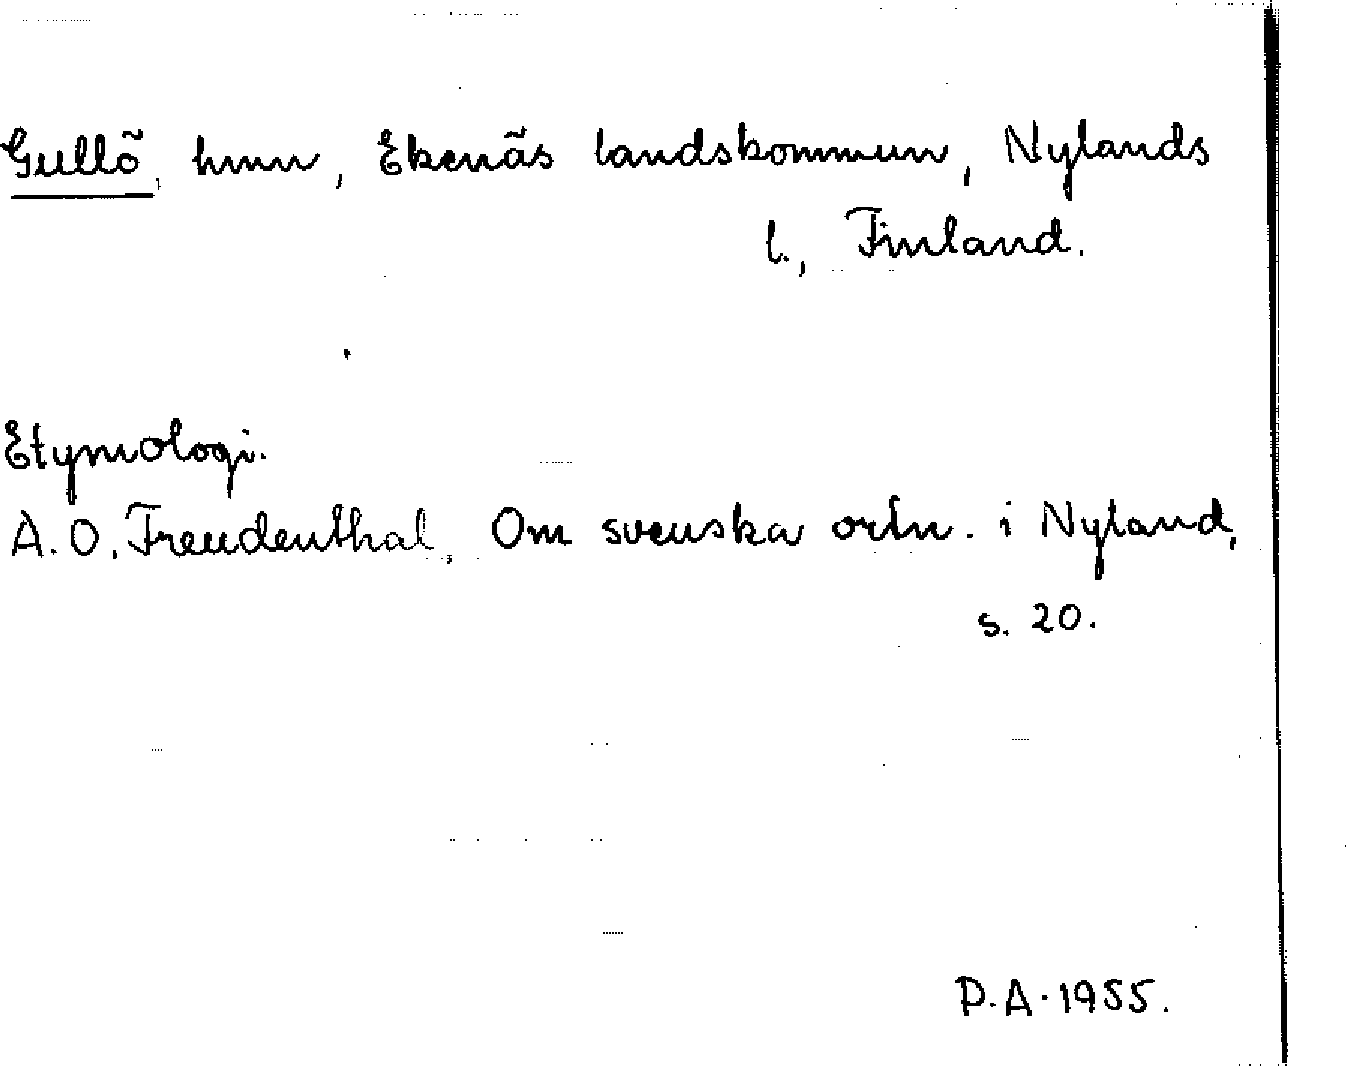 Gullö, hmn, Ekenäs landskommun, Nylands
l., Finland.
Etymologi.
A. O. Freudenthal, Om svenska ortn. i Nyland,
s. 20.
P.A. 1955.